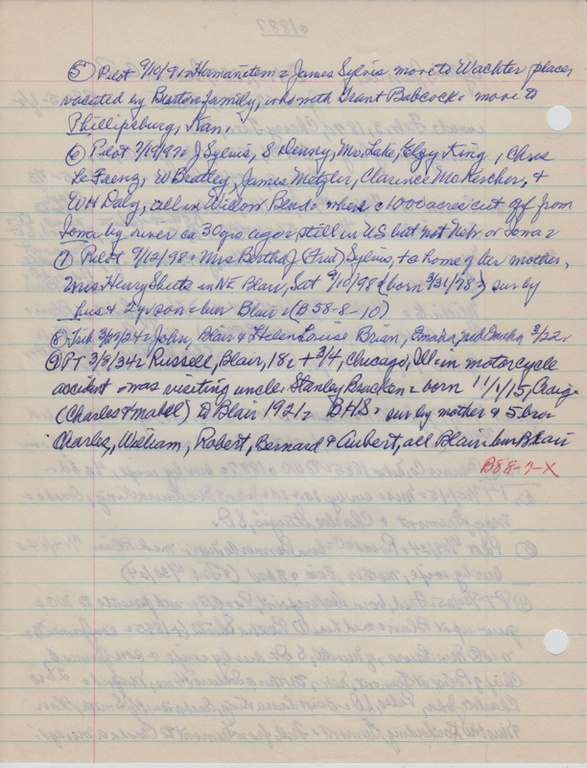 ⑤ Pilot 9/10/91 James Sylvis move to Wachter place,
vacated by Burton family, who with Grant Babcock move to
Phillipsburg, Kan.
⑥ Pilot J Sylvis, S Denny, Mr. Lake, Elzy King, Chris
W Beatley, James Metzler, Clarence McKercher, &
WH Daly, all in Willow Bend where 1000 acres cut off from
Iowa by river ca 30 yrs ago & still in US but not Nebr or Iowa
⑦ Pilot 9/12/98 Mrs Bertha J (Fred) Sylvis, to home of her mother,
Mrs Henry Sheets in NE Blair, Sat 9/10/98 (born 3/31/78) sur by
hus & 2 yr son bur Blair (B58-8-10)
⑧ Trib John, Blair & Helen Louise Brian, Omaha, Omaha 3/22
⑨ PT 3/8/34 Russell, Blair, 18, + 3/4, Chicago, Ill in motorcycle
accident was visiting uncle Stanley Bracken born 11/1/15, Craig
(Charles & Mabel) Blair 1921 BHS sur by mother & 5 bros
Charles, William, Robert, Bernard & Aubert, all Blair bur Blair
B58-7-X